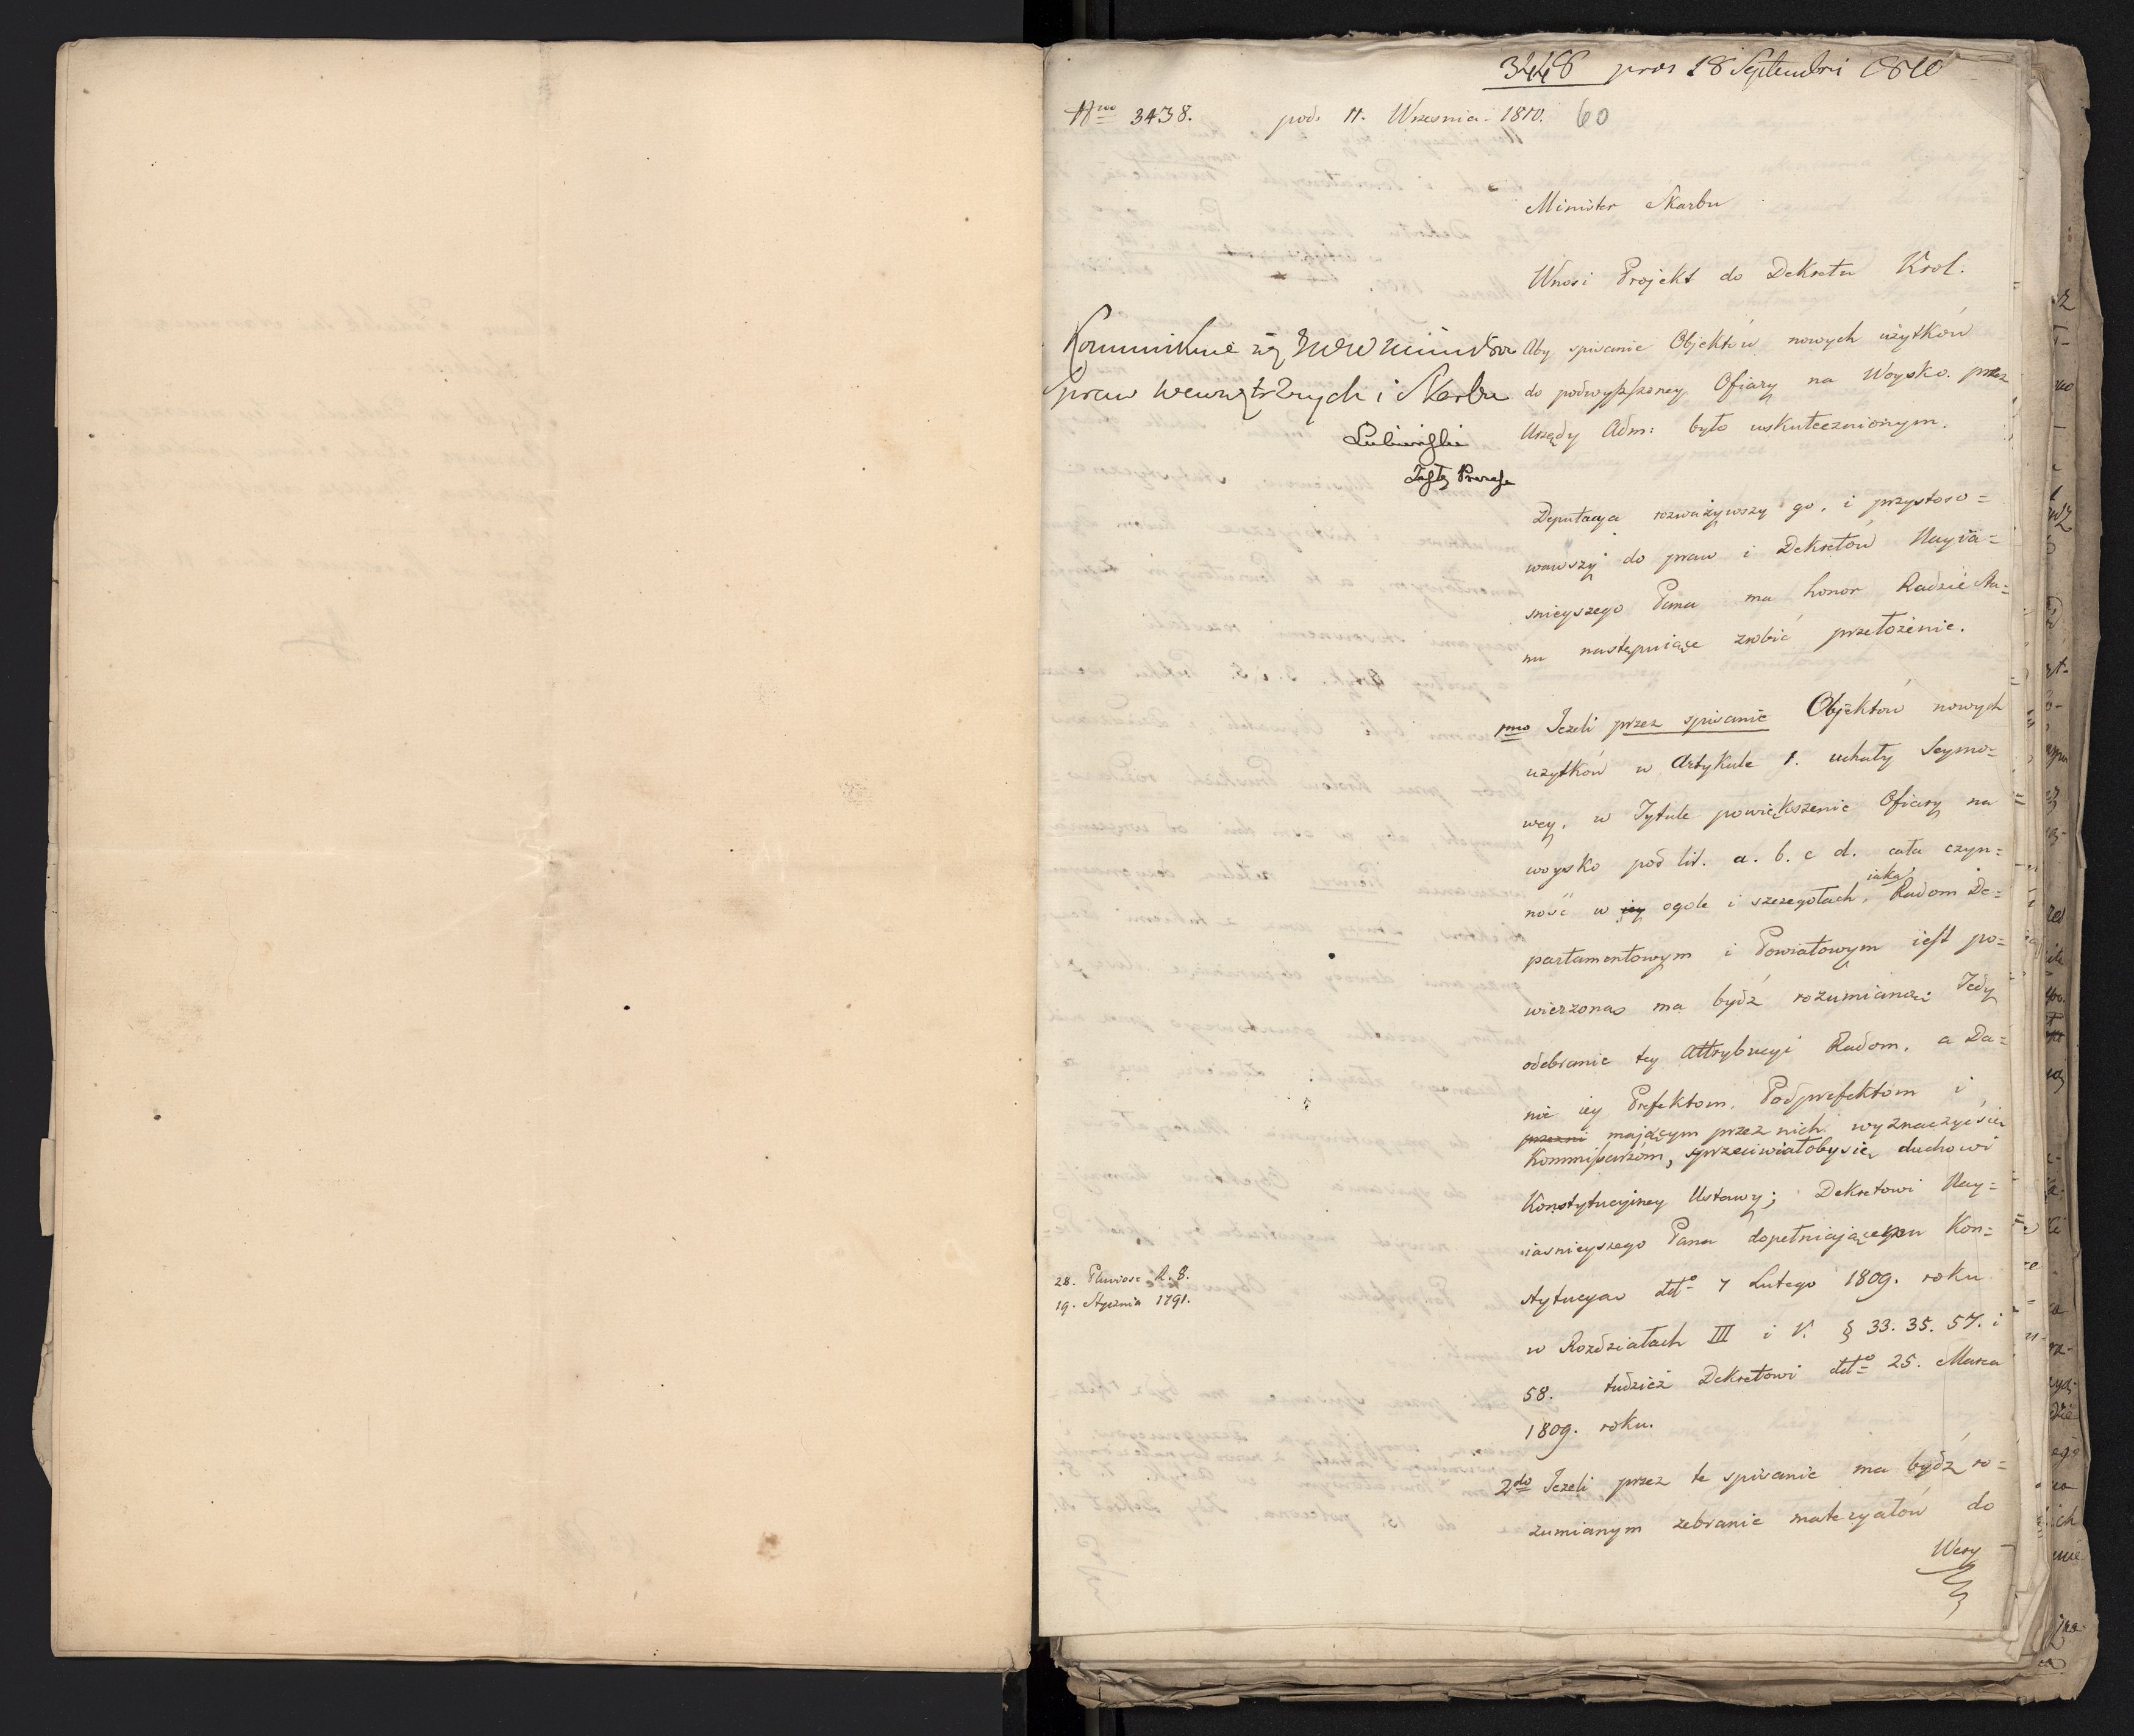 3448 pres 18 Septembri 1810
Nro 3438. pod. 11. Wrzesnia 1810. 60
Minister Skarbu
Wnosi Projekt do Dekretu Krol.
Aby spisanie Objektów nowych użytków
do podwyższoney Ofiary na Woysko. przez
Urzędy Adm: było uskutecznionym.
Kommunikuie się
Spraw wewnętrznych i Skarbu
Lubieński
Deputacya rozważywszy go, i przystoso=
wawszy do praw i Dekretów Nayia=
snieyszego Pana ma honor Radzie Sta=
nu następuiące zrobić przełożenie.
1mo Jeżeli przez spisanie Objektów nowych
użytków w Artykule 1. uchały Seymo=
wey, w Tytule powiększenie Ofiary na
woysko pod lit. a. b. c d. cała czyn=
ność w iey ogole i szczegołach, iaka Radom De=
partamentowym i Powiatowym iest po=
wierzona ma bydź rozumianą: Tedy
odebranie tey Attrybucyi Radom, a Da=
nie iey Prefektom, Podprefektom i
przezni mającym przez nich wyznaczyć się
Kommissarzom, sprzeciwiałoby się duchowi
Konstytucyiney Ustawy; Dekretowi Nay=
iasnieyszego Pana dopełniającemu Kon=
stytucyą ddto 7 Lutego 1809. roku
28. Pluviose R. 8.
19. Stycznia 1791.
w Rozdziałach III i V. § 33. 35. 57. i
58. tudzież Dekretowi ddto 25. Marca
1809. roku.
2do Jeżeli przez te spisanie ma bydź ro=
zumianym zebranie materyałów do
Wery